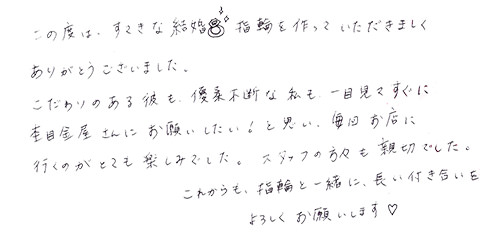 この度は、すてきな結婚指輪を作っていただきましく
ありがとうございました。
こだわりのある彼も、優柔不断な私も、一目見てすぐに
杢目金屋さんにお願いしたい！と思い、毎回お店に
行くのがとても楽しみでした。スタッフの方々も親切でした。
これからも、指輪と一緒に、長い付き合いを
よろしくお願いします♡